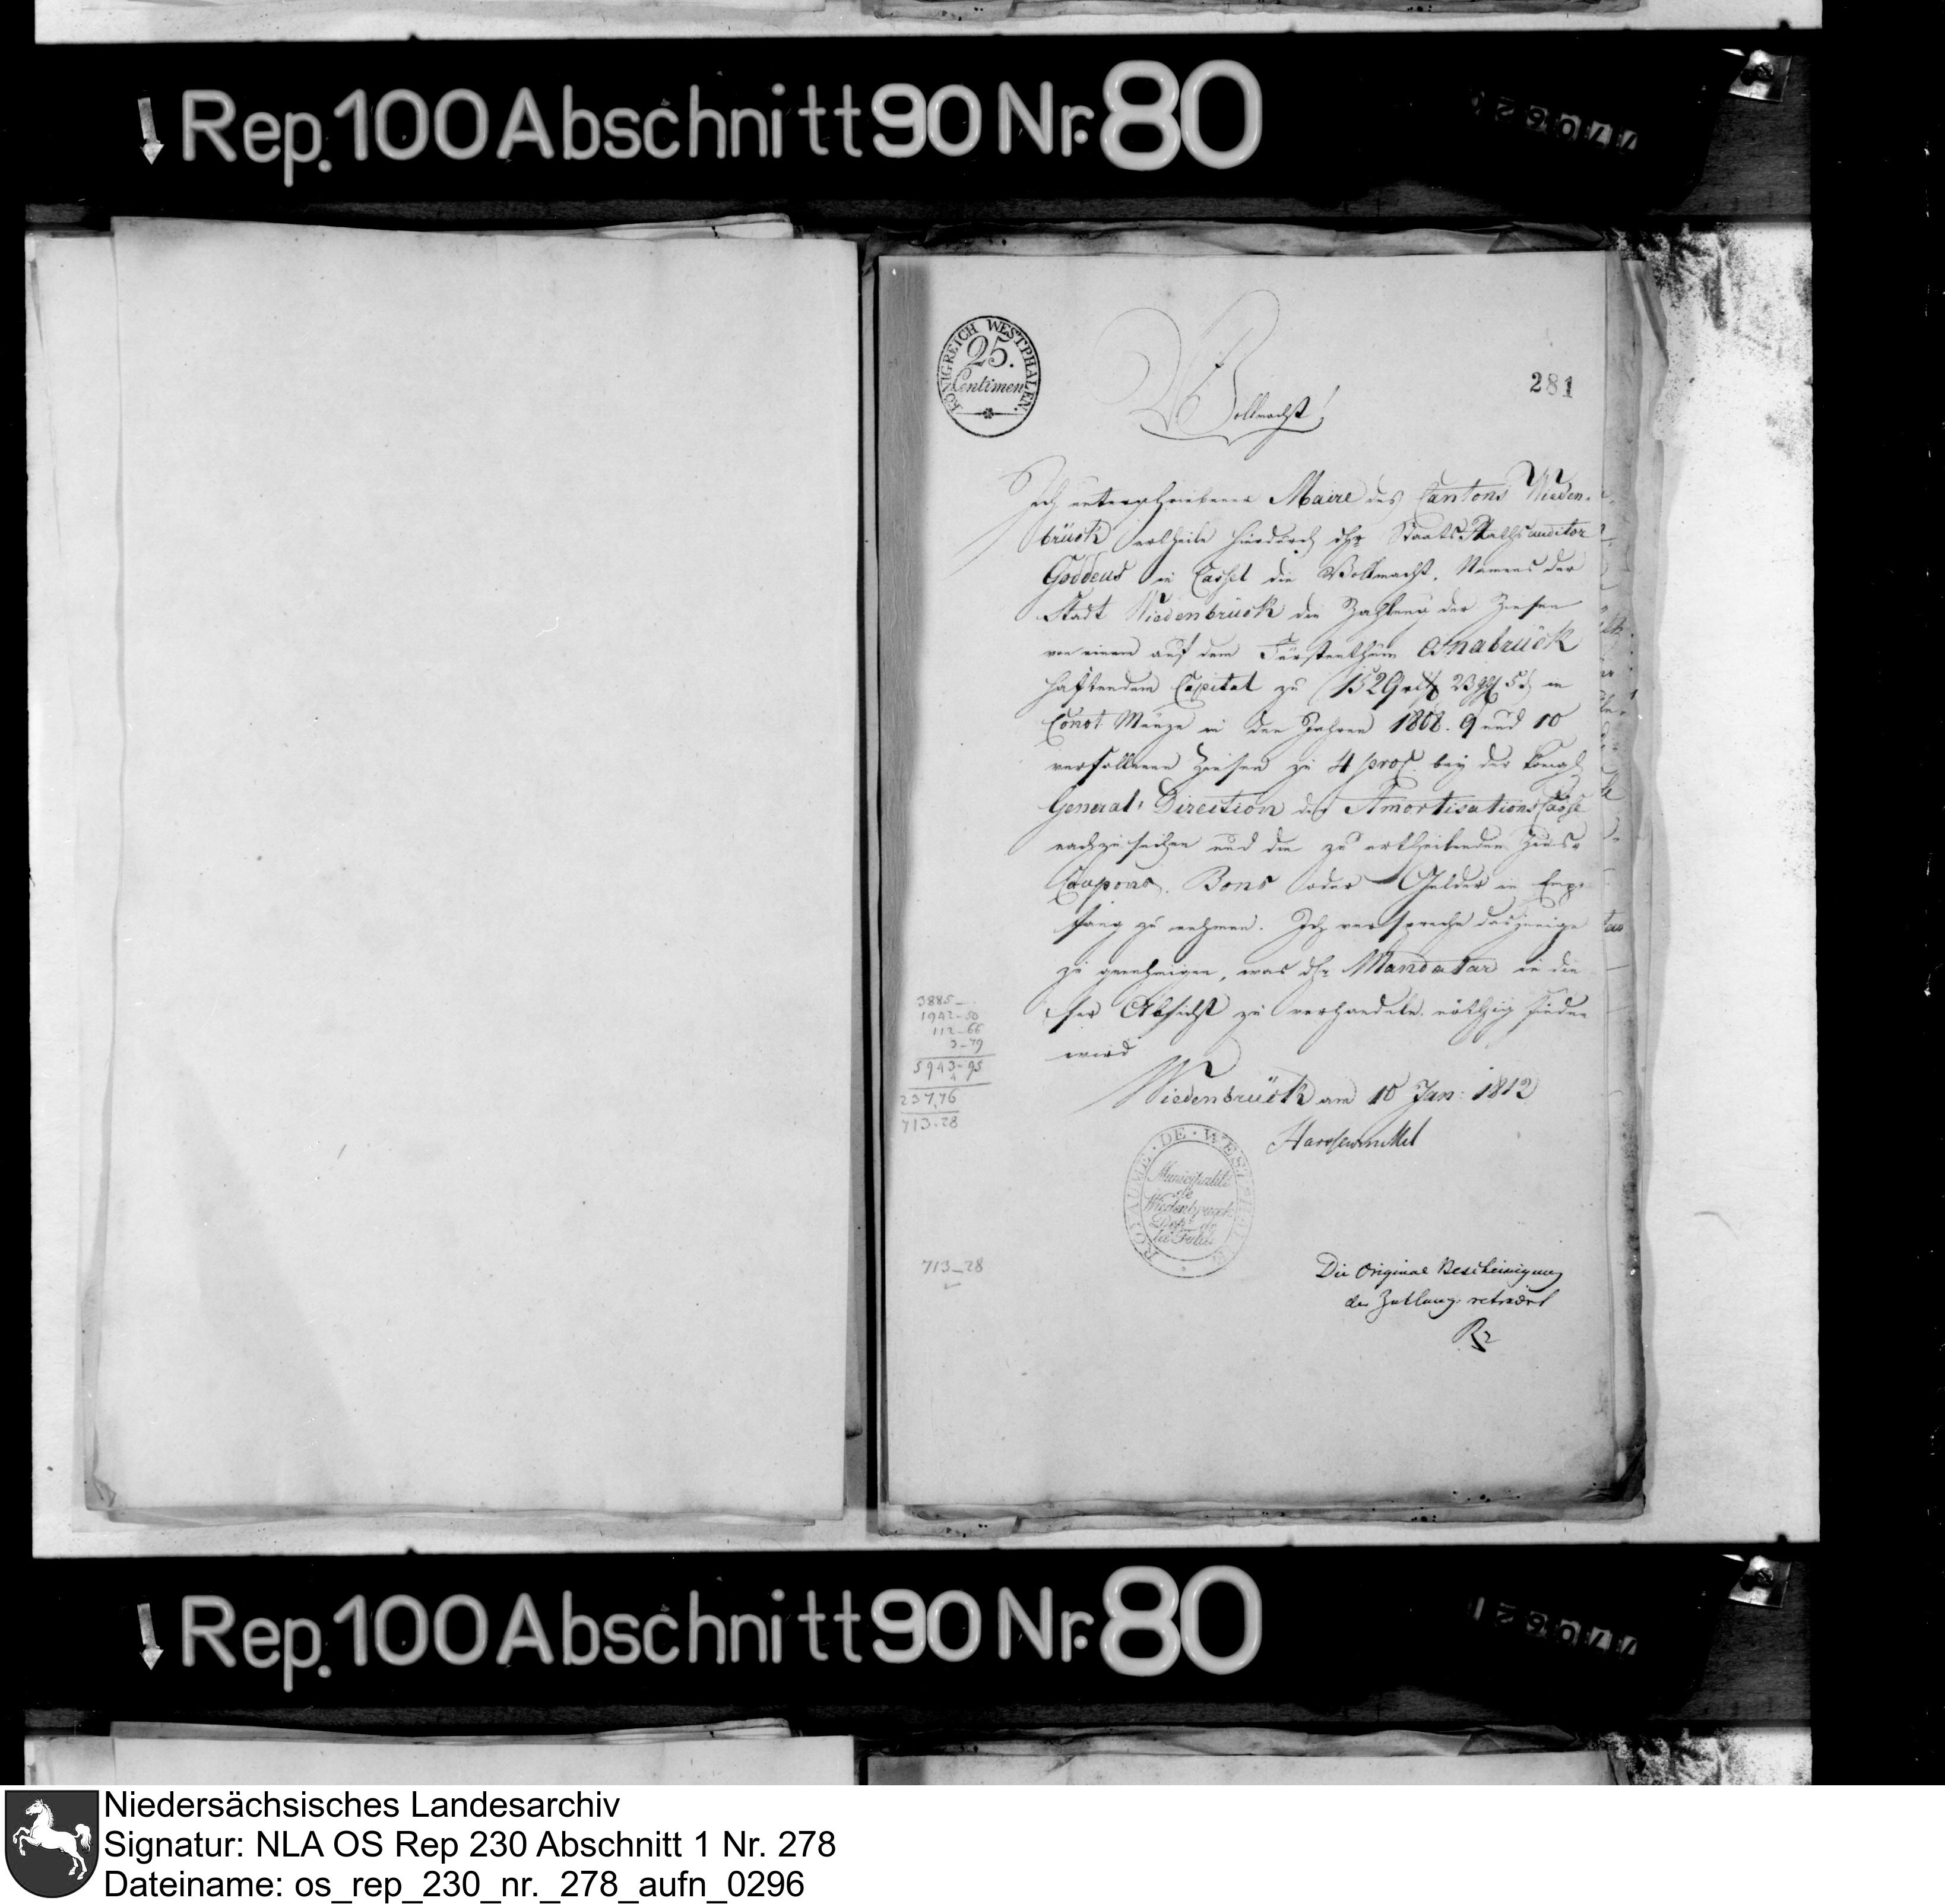 Rep. 100 Abschnitt 90 Nr. 80
KÖNIGREICH WESTPHALEN.
25.
Centimen
281
Vollmacht!
Ich unterschriebener Maire des Cantons Wieden-
brück ertheile hierdurch dhr Staats Rathsauditor
Goddeus in Cassel die Vollmacht, Namens der
Stadt Wiedenbrück die Zahlung der Zinsen
von einem auf dem Fürstenthum Osnabrück
haftendem Capital zu 1529 rth 23 ggl 5 d in
Convt. Münze in den Jahren 1808. 9 und 10
verfallenen Zinsen zu 4 proC. bey der Königl
General-Direction der Amortisations Casse
nachzusuchen und die zu ertheilenden Zins-
Coupons, Bons oder Gelder in Emp-
fang zu nehmen. Ich verspreche dasjenige
zu genehmigen, was dhr Mandatar in die
ser Absicht zu verhandeln nöthig finden
wird
Wiedenbrück am 10 Jan: 1812
Harsewinkel
3885-
1942-50
112-66
3-79
5943-95
4
237,76
713-28
ROYAUME · DE · WESTPHALIE
Municipalité
de
Wiedenbrueck
Dept. de
la Fulde
713-28
Die Original Bescheinigung
der Zahlung retradirt
Rep. 100 Abschnitt 90 Nr. 80
Niedersächsisches Landesarchiv
Signatur: NLA OS Rep 230 Abschnitt 1 Nr. 278
Dateiname: os_rep_230_nr._278_aufn_0296